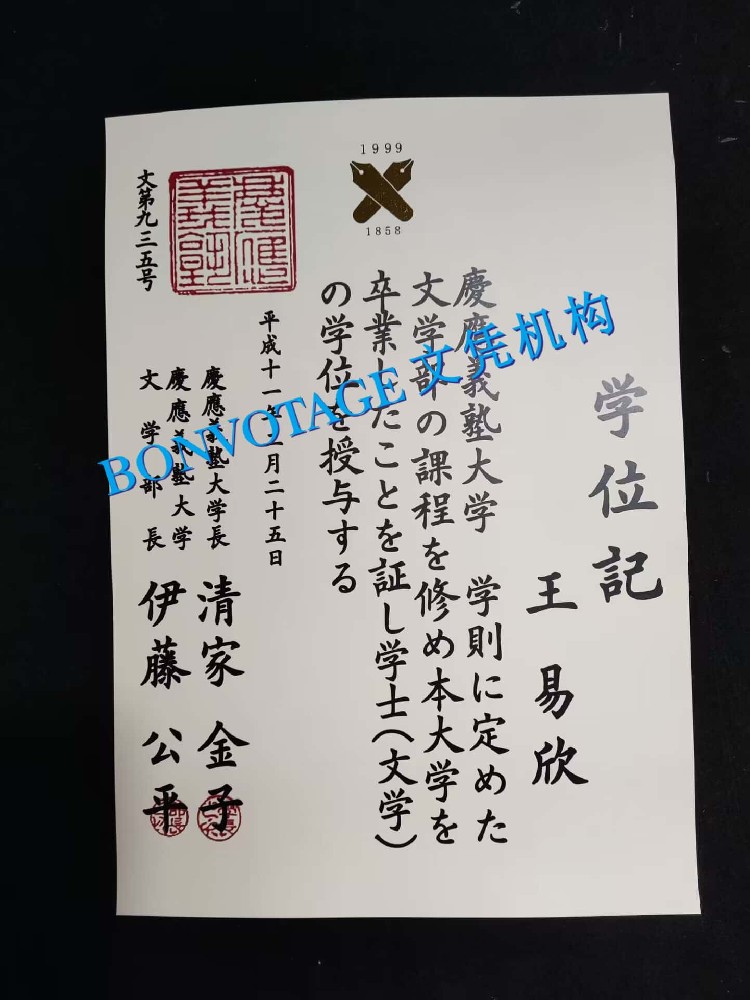 学位記
王易欣
慶應義塾大学 学則に定めた
文学部の課程を修め本大学を
卒業したことを証し学士(文学)
の学位を授与する
1999
1858
平成十一年 月二十五日
慶應義塾大学長 清家 金子
慶應義塾大学
文学部長 伊藤 公平
文第九三五号
BONVOTAGE 文凭机构